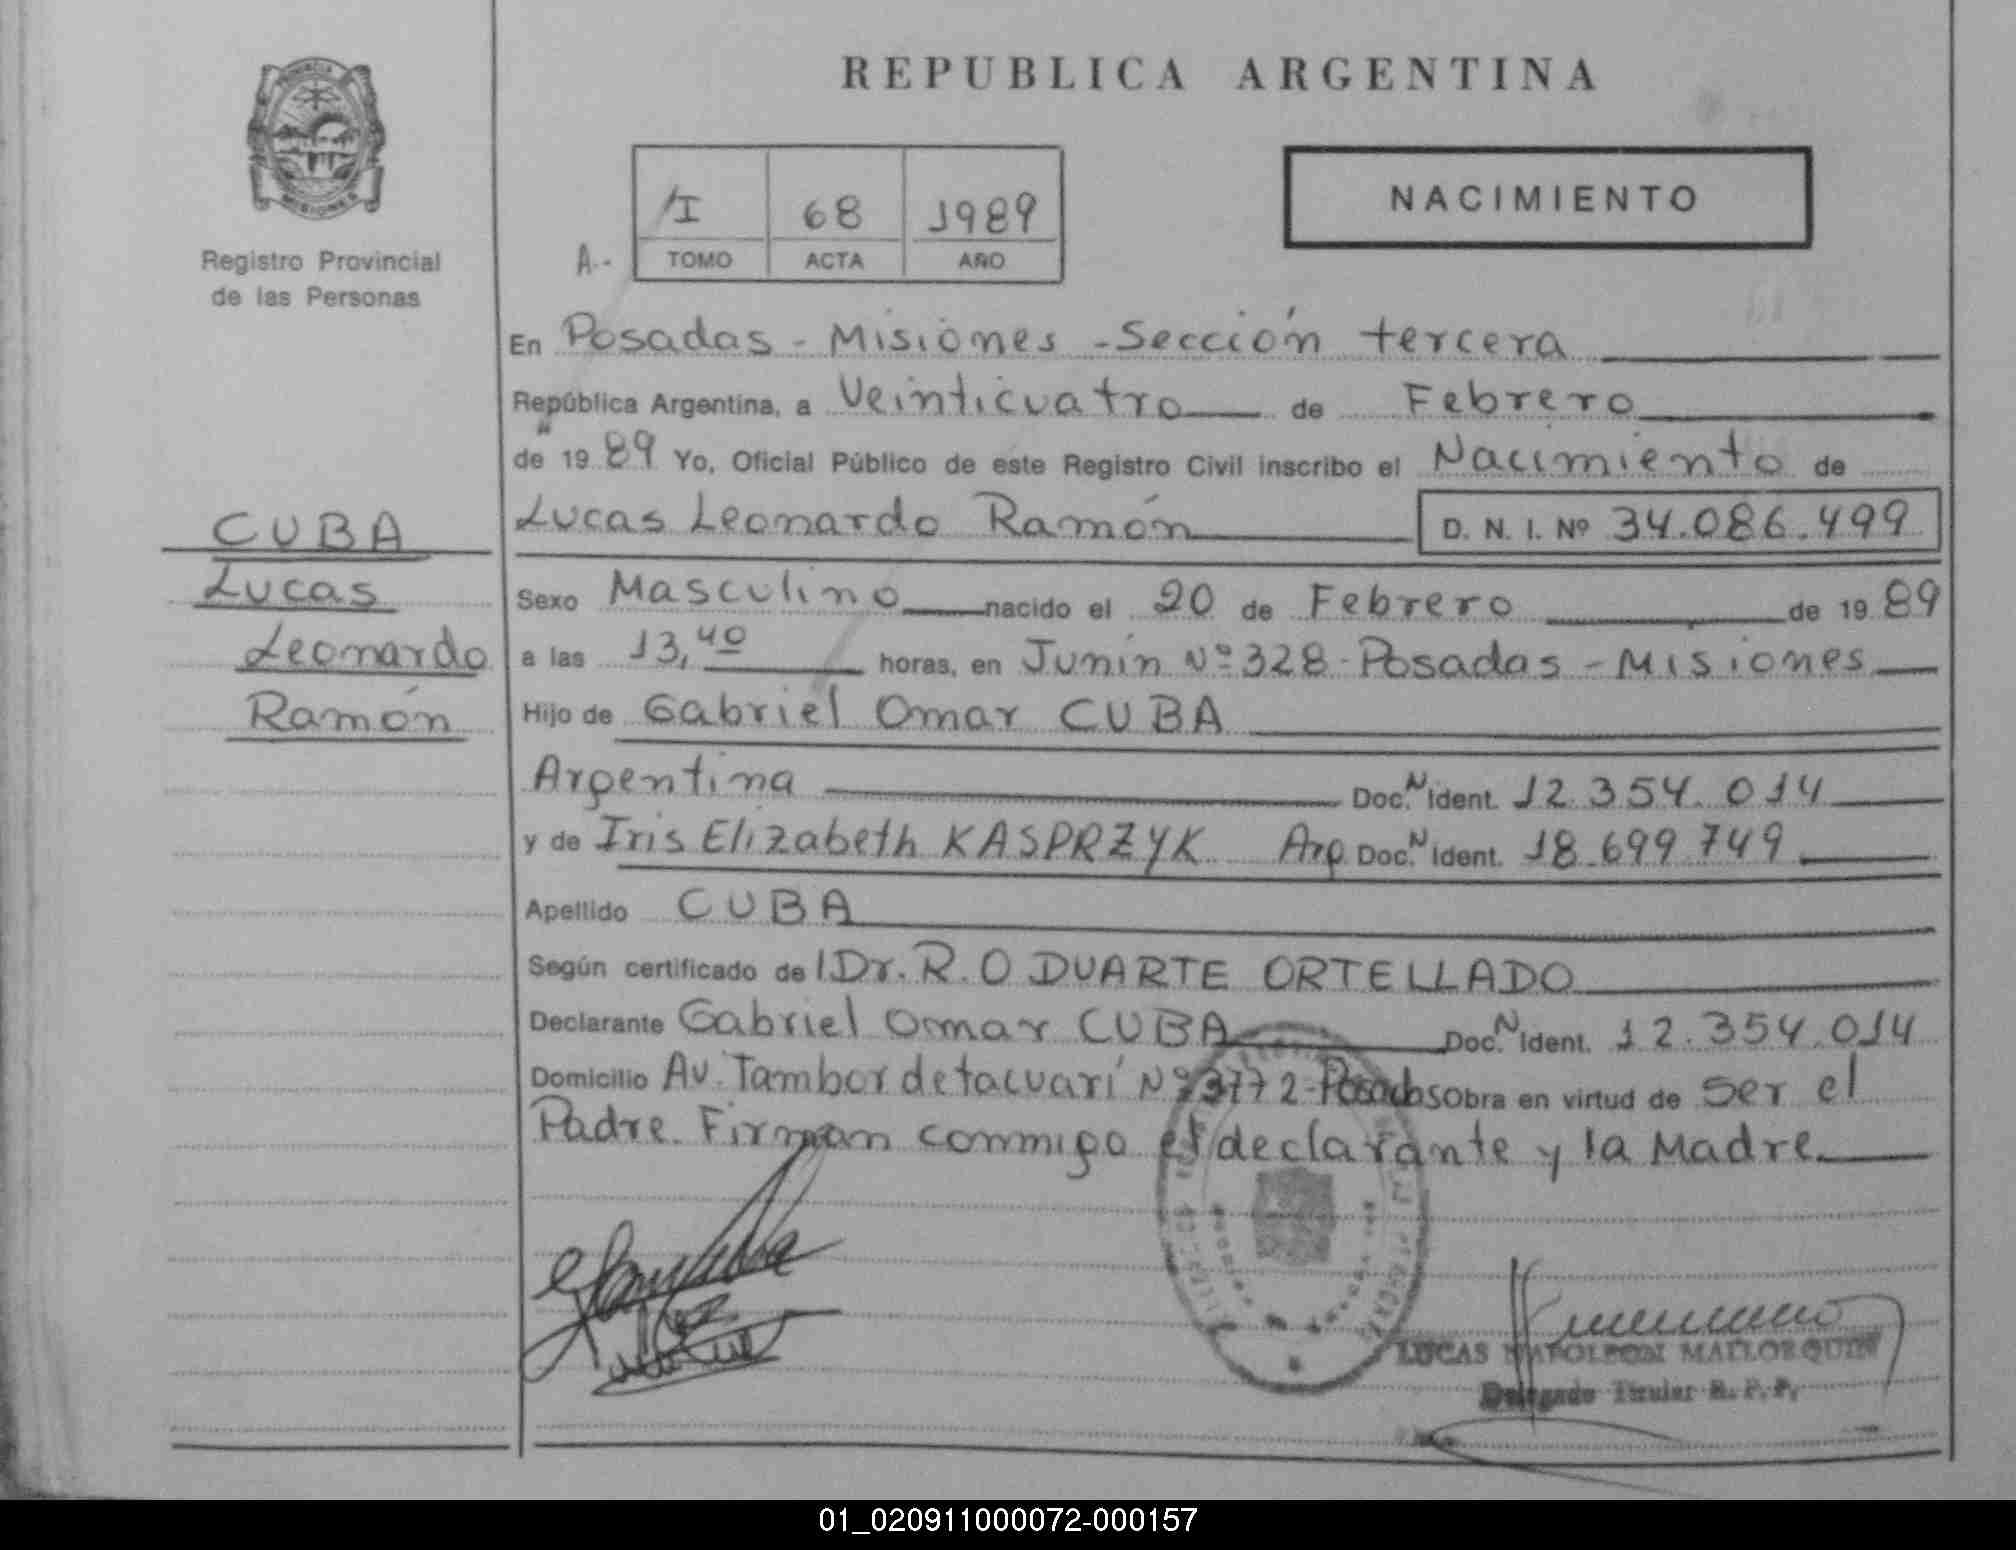 REPUBLICA ARGENTINA
PROVINCIA
MISIONES
Registro Provincial
de las Personas
A.-
/I 68 1989
TOMO ACTA AÑO
NACIMIENTO
CUBA
Lucas
Leonardo
Ramón
En Posadas - Misiones - Sección tercera
República Argentina, a Veinticuatro de Febrero
de 19 89 Yo, Oficial Público de este Registro Civil inscribo el Nacimiento de
Lucas Leonardo Ramón D. N. I. Nº 34.086.499
Sexo Masculino nacido el 20 de Febrero de 19 89
a las 13,40 horas, en Junín Nº 328 - Posadas - Misiones
Hijo de Gabriel Omar CUBA
Argentina Doc. N Ident. 12.354.014
y de Iris Elizabeth KASPRZYK Arg. Doc. N Ident. 18.699.749
Apellido CUBA
Según certificado de Dr. R. O DUARTE ORTELLADO
Declarante Gabriel Omar CUBA Doc. N Ident. 12.354.014
Domicilio Av. Tambor de tacuarí Nº 3772 - Posadas Obra en virtud de Ser el
Padre. Firman conmigo el declarante y la Madre.
LUCAS NAPOLEON MALLORQUIN
Delegado Titular R. P. P.
01_020911000072-000157